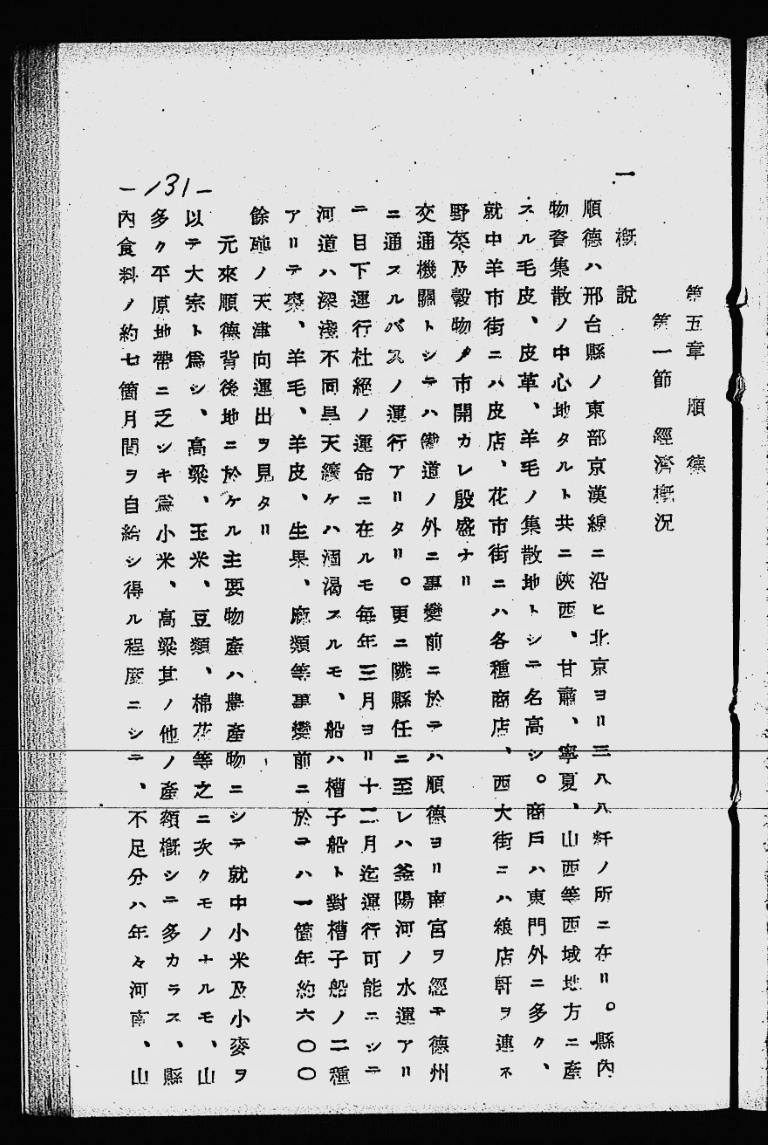 第五章 順德
第一節 經濟概況
一 概說
順德ハ邢台縣ノ東部京漢線ニ沿ヒ北京ヨリ三八八粁ノ所ニ在リ。縣內
物資集散ノ中心地タルト共ニ陝西、甘肅、寧夏、山西等西域地方ニ產
スル毛皮、皮革、羊毛ノ集散地トシテ名高シ。商戶ハ東門外ニ多ク、
就中羊市街ニハ皮店、花市街ニハ各種商店、西大街ニハ糧店軒ヲ連ネ
野菜及穀物ノ市開カレ殷盛ナリ
交通機關トシテハ鐵道ノ外ニ事變前ニ於テハ順德ヨリ南宮ヲ經テ德州
ニ通スルバスノ運行アリタリ。更ニ隣縣任ニ至レハ釜陽河ノ水運アリ
ニ目下運行杜絕ノ運命ニ在ルモ每年三月ヨリ十二月迄運行可能ニシテ
河道ハ深淺不同旱天續ケハ涸渴スルモ、船ハ槽子船ト對槽子船ノ二種
アリテ棗、羊毛、羊皮、生果、麻類等事變前ニ於テハ一箇年約六〇〇
餘噸ノ天津向運出ヲ見タリ
元來順德背後地ニ於ケル主要物產ハ農產物ニシテ就中小米及小麥ヲ
以テ大宗ト爲シ、高粱、玉米、豆類、棉花等之ニ次クモノナルモ、山
多ク平原地帶ニ乏シキ爲小米、高粱其ノ他ノ產額槪シテ多カラス、縣
內食料ノ約七箇月間ヲ自給シ得ル程度ニシテ、不足分ハ年々河南、山
-131-